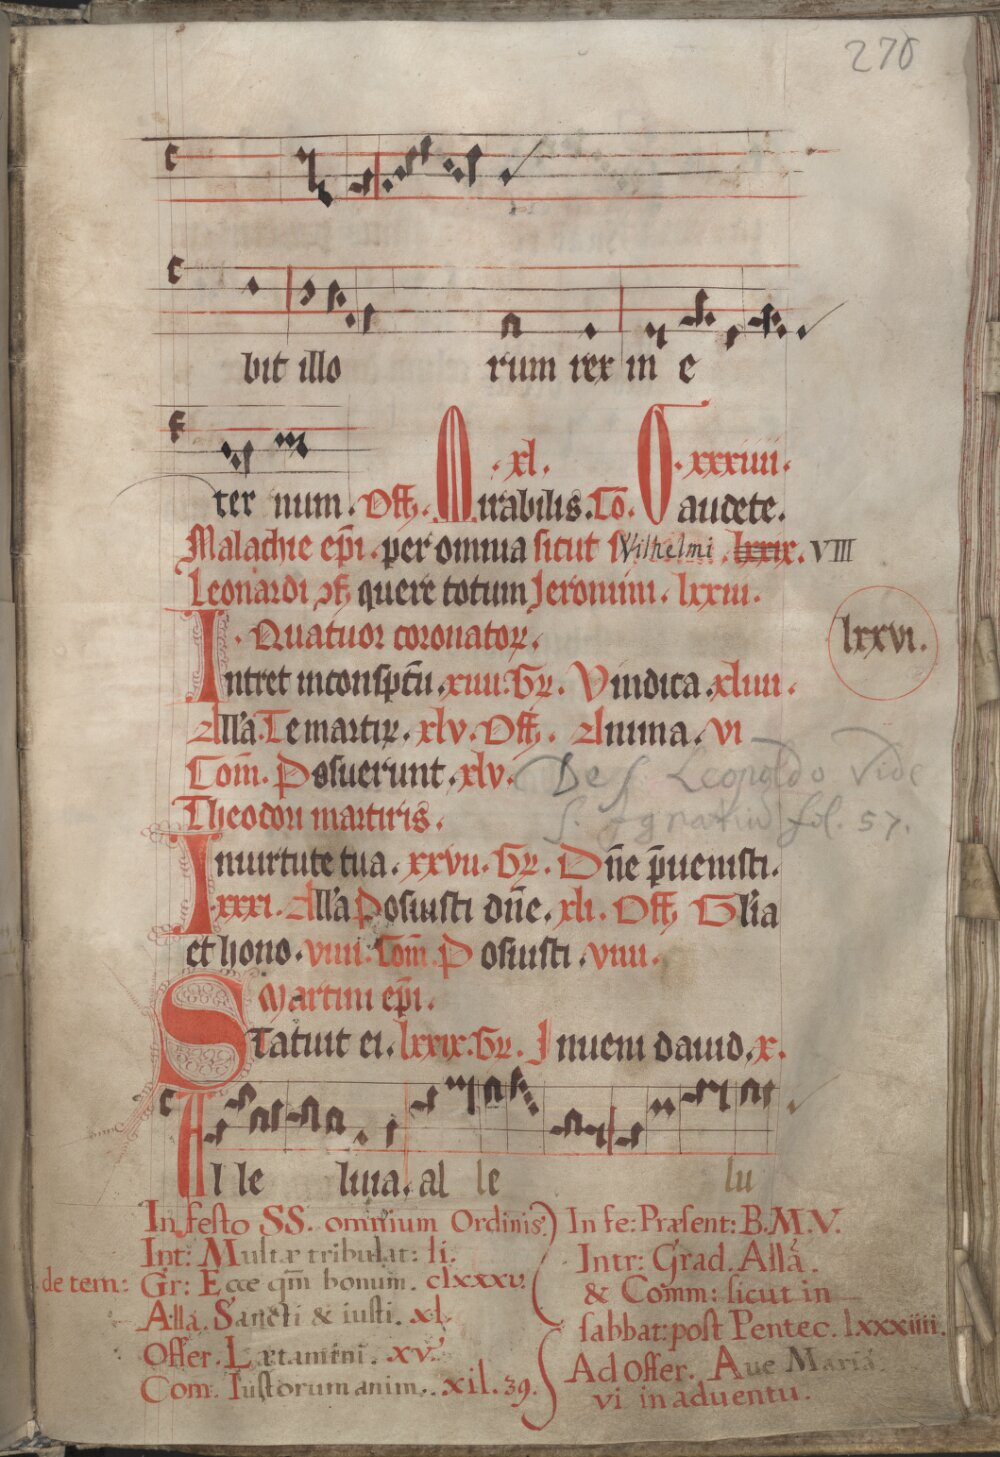 270
bit illo rum rex in e
ter num. Off. Mirabilis. xl. Co. Gaudete. xxxiiii.
Malachie epi. per omnia sicut Wilhelmi. lxxix. VIII
Leonardi ɔf. quere totum Jeronimi. lxxiii.
Quatuor coronator.
lxxvi.
Intret in conspectu. xiiii. Gr. Vindica. xliiii.
Alla. Te martir. xlv. Off. Anima. vi
Com. Posuerunt. xlv.
De S. Leopoldo Vide
S. Ignatiu fol. 57.
Theodori martiris.
In uirtute tua. xxvii. Gr. Dne preuenisti.
xxxi. Alla Posuisti dne. xli. Off. Glia
et hono. viiii. Com. Posuisti. viiii.
Martini epi.
Statuit ei. lxxix. Gr. Inueni dauid. x.
Al le luia. al le lu
In festo SS. omnium Ordinis.
Int: Multæ tribulat: li.
de tem: Gr: Ecce qm bonum. clxxxv.
Alla. Sancti & iusti. xl.
Offer. Lætamini. xv.
Com. Iustorum anim. xil. 39.
In fe: Præsent: B.M.V.
Intr: Grad. Alla.
& Comm: sicut in
sabbat: post Pentec. lxxxiiii.
Ad Offer. Aue Maria
vi in aduentu.